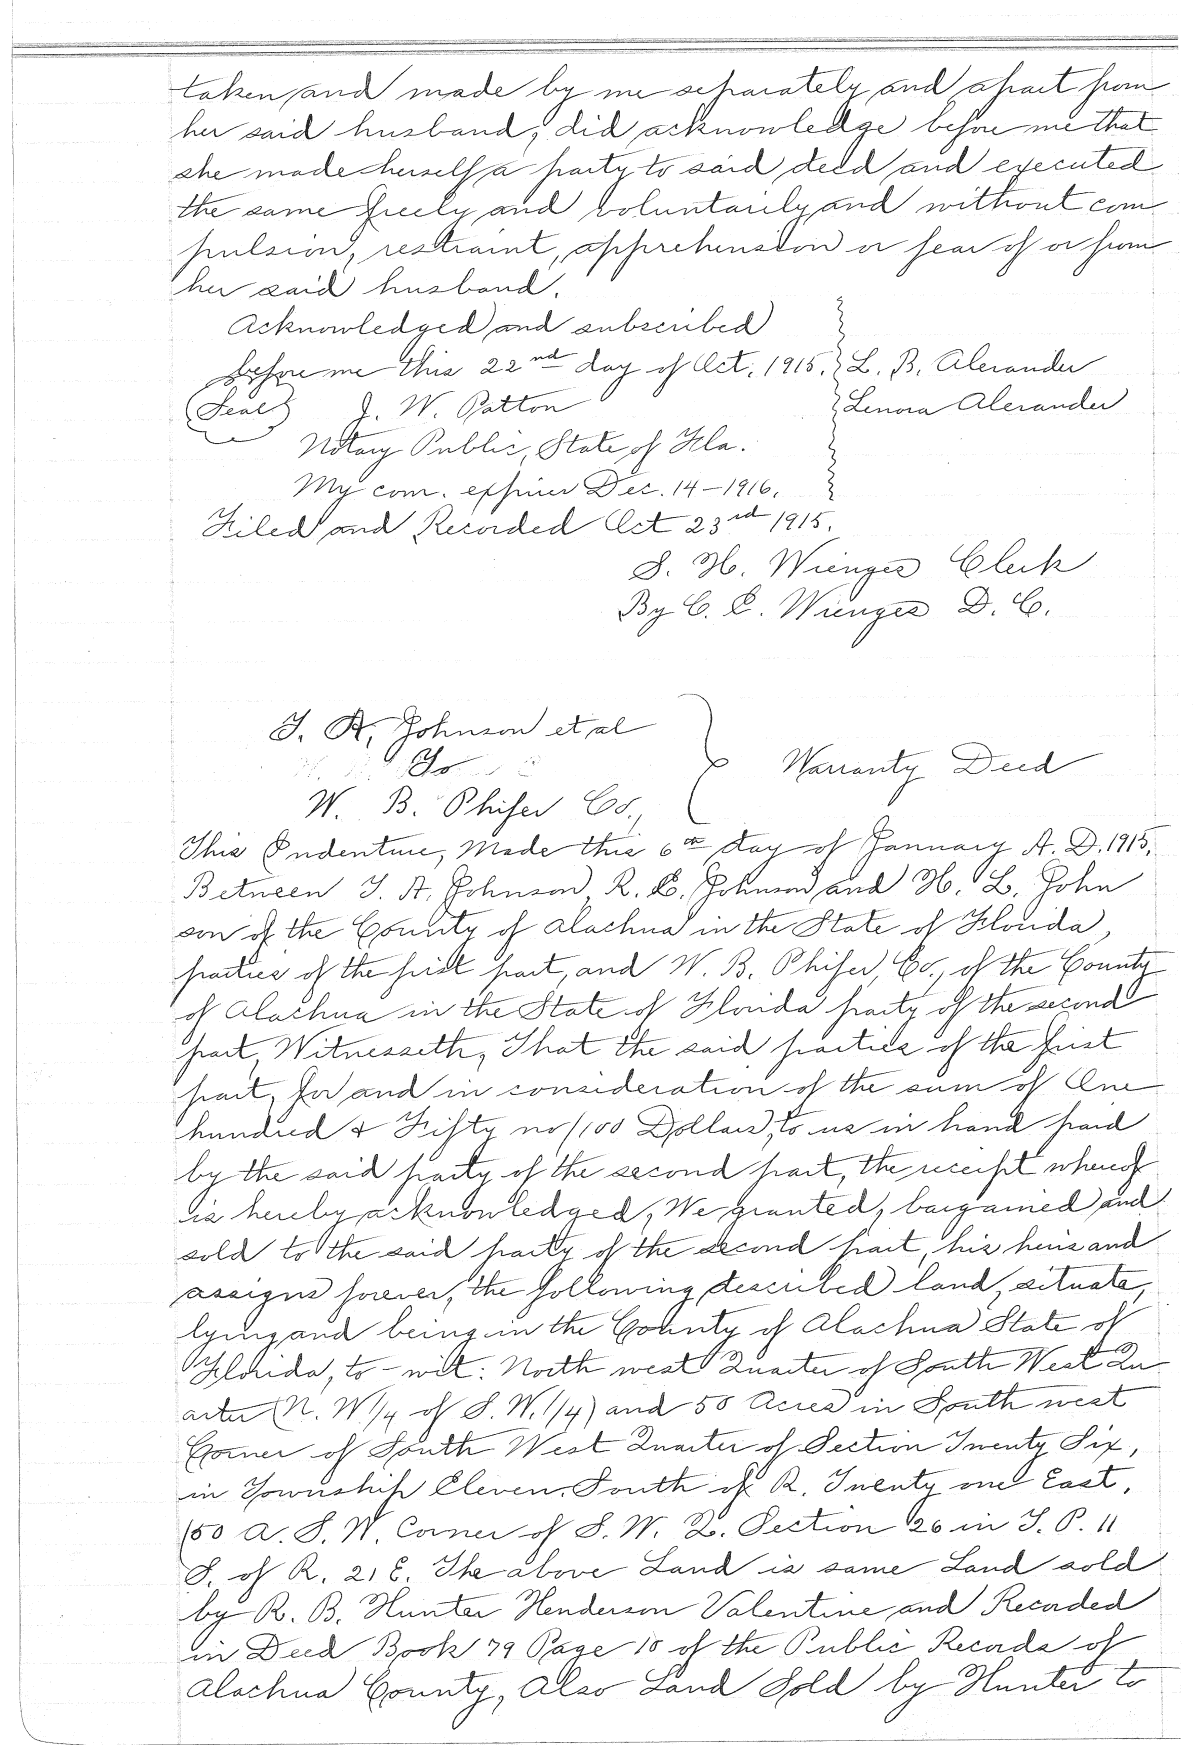 taken and made by me separately and apart from
her said husband, did acknowledge before me that
she made herself a party to said deed and executed
the same freely and voluntarily and without com
pulsion, restraint, apprehension or fear of or from
her said husband.
Acknowledged and subscribed
before me this 22nd day of Oct. 1915. L. B. Alexander
(Seal) J. W. Patton Lenora Alexander
Notary Public, State of Fla.
My com. expires Dec. 14-1916.
Filed and Recorded Oct 23rd 1915.
S. H. Wienges Clerk
By C. E. Wienges D. C.
J. A. Johnson et al
To Warranty Deed
W. B. Phifer Co.,
This Indenture, Made this 6th day of January A. D. 1915,
Between J. A. Johnson, R. E. Johnson and H. L. John
son of the County of Alachua in the State of Florida,
parties of the first part, and W. B. Phifer, Co., of the County
of Alachua in the State of Florida party of the second
part, Witnesseth, That the said parties of the first
part, for and in consideration of the sum of One
hundred & Fifty no/100 Dollars, to us in hand paid
by the said party of the second part, the receipt whereof
is hereby acknowledged, We granted, bargained and
sold to the said party of the second part, his heirs and
assigns forever, the following described land, situate,
lying and being in the County of Alachua State of
Florida, to-wit: North west Quarter of South West Qu
arter (N. W 1/4 of S. W. 1/4) and 50 Acres in South west
Corner of South West Quarter of Section Twenty Six,
in Township Eleven South of R. Twenty one East,
(50 A. S. W. Corner of S. W. Q. Section 26 in T. P. 11
S. of R. 21 E. The above Land is same Land sold
by R. B. Hunter Henderson Valentine and Recorded
in Deed Book 79 Page 10 of the Public Records of
Alachua County, Also Land Sold by Hunter to